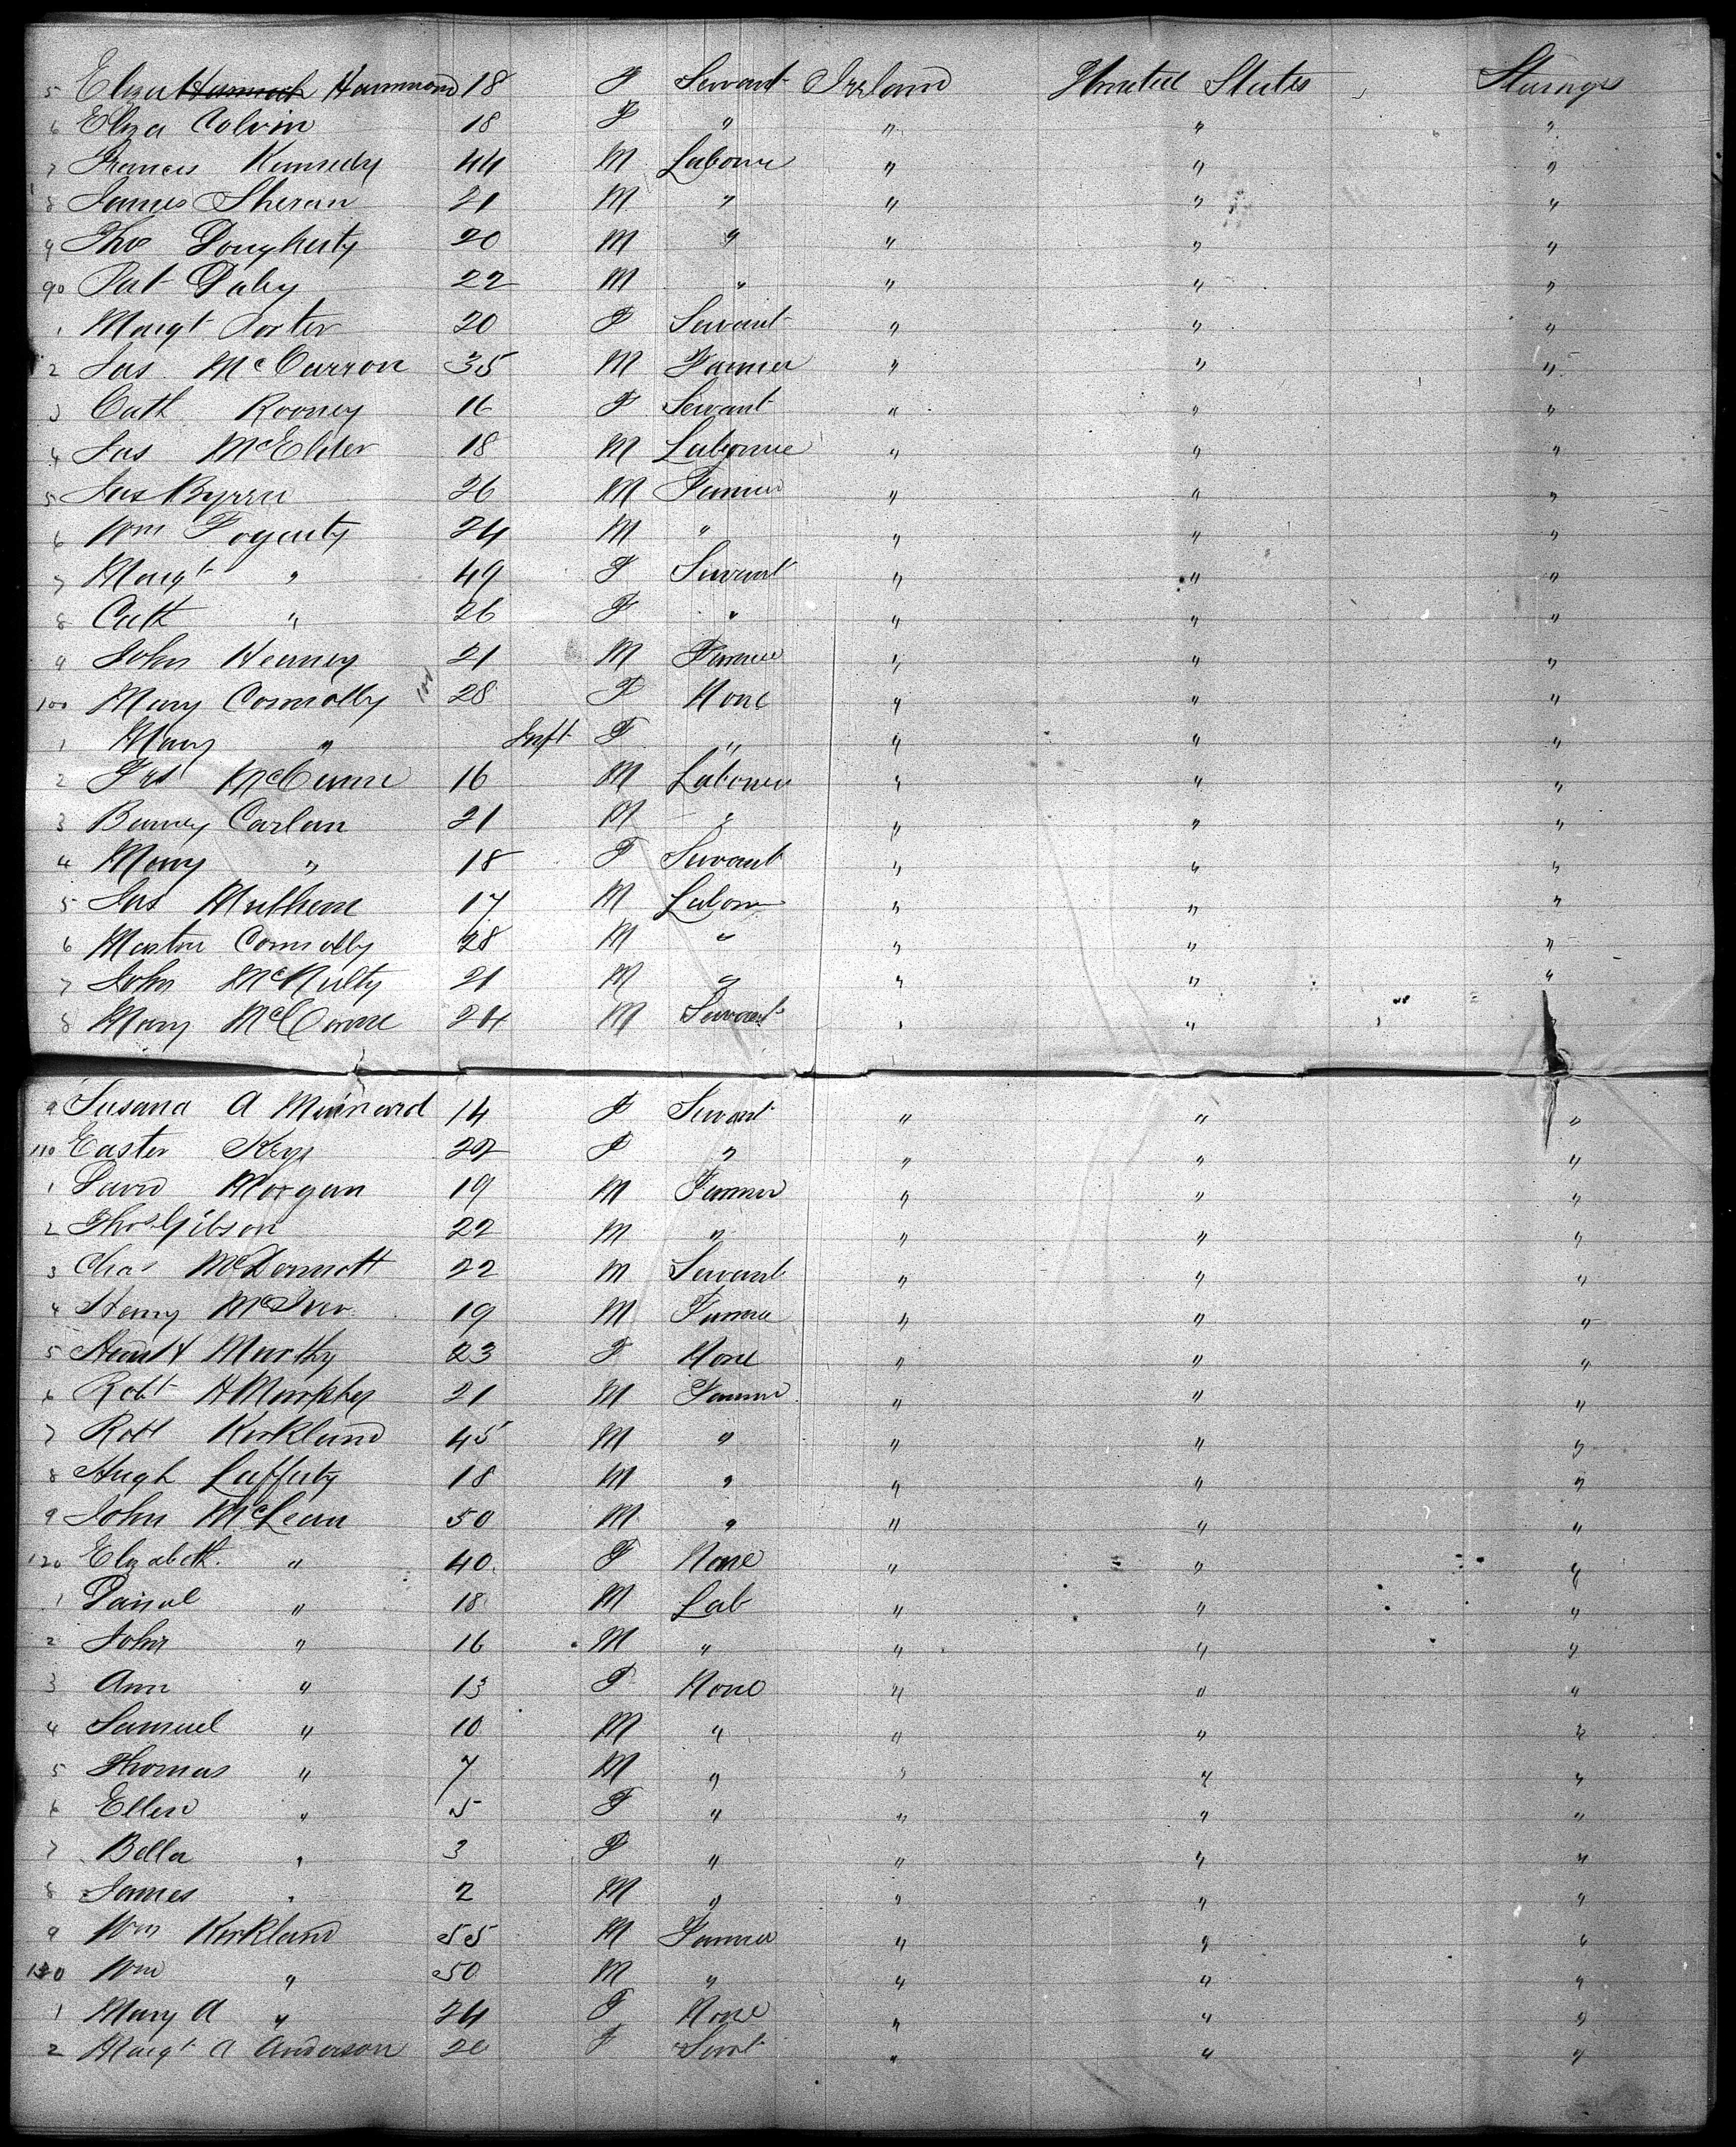 5 Eliza Hannah Hammond 18 F Servant Ireland United States Steerage
6 Eliza Colvin 18 F " " " "
7 Francis Kennedy 44 M Laborer " " "
8 James Sheran 21 M " " " "
9 Thos Dougherty 20 M " " " "
90 Pat Daley 22 M " " " "
1 Margt Porter 20 F Servant " " "
2 Jas McCarron 35 M Farmer " " "
3 Cath Rooney 16 F Servant " " "
4 Jas 18 M Laborer " " "
5 Jas Byrne 26 M Farmer " " "
6 Wm Fogerty 24 M " " " "
7 Margt " 49 F Servant " " "
8 Cath " 26 F " " " "
9 John Heaney 21 M Farmer " " "
100 Mary Connolly 100 28 F None " " "
1 Mary " Inft F " " " "
2 16 M Laborer " " "
3 Barney Carlan 21 M " " " "
4 Mary " 18 F Servant " " "
5 Jas 17 M Labor " " "
6 Martin Connolly 28 M " " " "
7 John McNulty 21 M " " " "
8 Mary 24 M Servant " " "
9 Susana A 14 F Servant " " "
110 Easter Keys 22 F " " " "
1 David Morgan 19 M Farmer " " "
2 Thos Gibson 22 M " " " "
3 Chas McDermott 22 M Servant " " "
4 Henry McIver 19 M Farmer " " "
5 23 F None " " "
6 Robt H Murphy 21 M Farmer " " "
7 Robt Kirkland 45 M " " " "
8 Hugh Lafferty 18 M " " " "
9 John McLean 50 M " " " "
120 Elizabeth " 40 F None " " "
1 Daniel " 18 M Lab " " "
2 John " 16 M " " " "
3 Ann " 13 F None " " "
4 Samuel " 10 M " " " "
5 Thomas " 7 M " " " "
6 Ellen " 5 F " " " "
7 Bella " 3 F " " " "
8 James " 2 M " " " "
9 Wm Kirkland 55 M Farmer " " "
130 Wm " 50 M " " " "
1 Mary A " 24 F None " " "
2 Margt A Anderson 20 F Servt " " "